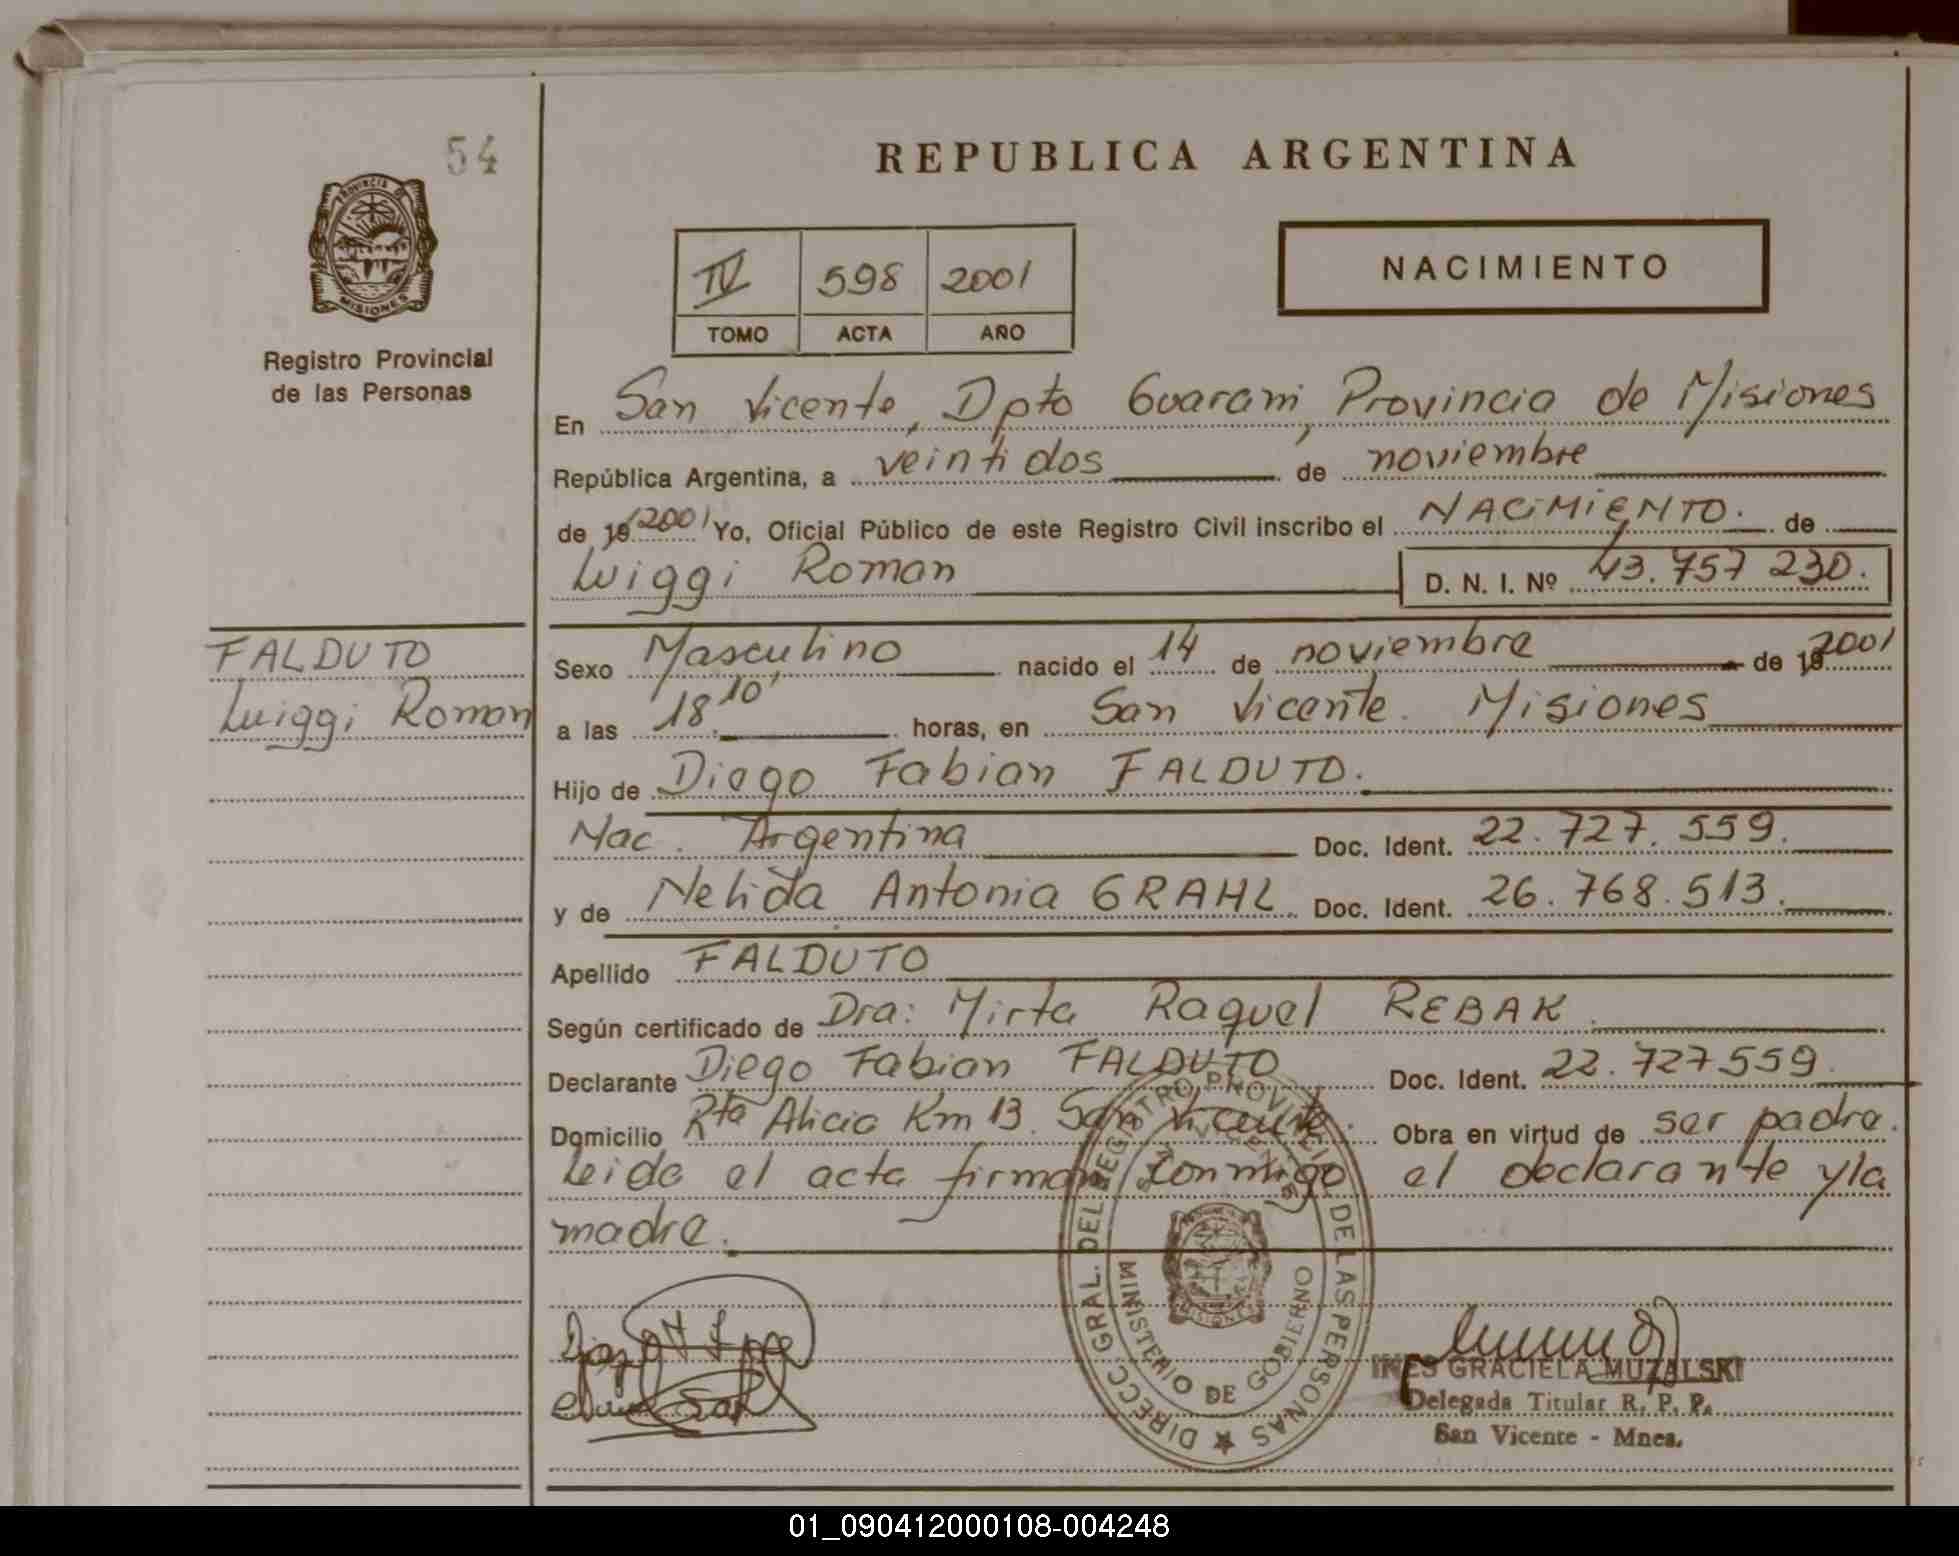 54
REPUBLICA ARGENTINA
PROVINCIA DE
MISIONES
Registro Provincial
de las Personas
IV 598 2001
TOMO ACTA AÑO
NACIMIENTO
En San Vicente, Dpto Guarani, Provincia de Misiones
República Argentina, a veintidos de noviembre
de 19 2001 Yo, Oficial Público de este Registro Civil inscribo el NACIMIENTO. de
Luiggi Roman D. N. I. Nº 43.757 230.
FALDUTO
Luiggi Roman
Sexo Masculino nacido el 14 de noviembre de 19 2001
a las 18 10' horas, en San Vicente. Misiones
Hijo de Diego Fabian FALDUTO.
Nac. Argentina Doc. Ident. 22.727.559.
y de Nelida Antonia GRAHL Doc. Ident. 26.768.513.
Apellido FALDUTO
Según certificado de Dra: Mirta Raquel REBAK.
Declarante Diego Fabian FALDUTO Doc. Ident. 22.727559.
Domicilio Rta Alicia Km 13. San Vicente. Obra en virtud de ser padre.
Leida el acta firman conmigo el declarante y la
madre.
DIRECC. GRAL. DEL REGISTRO PROVINCIAL DE LAS PERSONAS
SAN VICENTE
MINISTERIO DE GOBIERNO
MISIONES
INES GRACIELA MUZALSKI
Delegada Titular R. P. P.
San Vicente - Mnes.
01_090412000108-004248